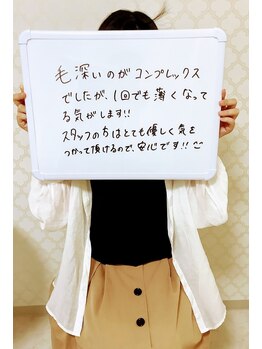 毛深いのがコンプレックス
でしたが、1回でも薄くなって
る気がします!!
スタッフの方はとても優しく気を
つかって頂けるので、安心です!!